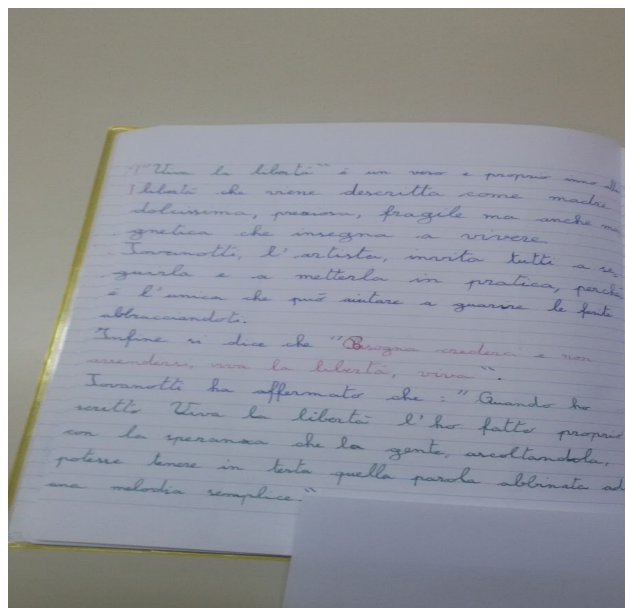 "Viva la libertà" è un vero e proprio inno alla
libertà che viene descritta come madre
dolcissima, preziosa, fragile ma anche ma
gnetica che insegna a vivere.
Jovanotti, l'artista, invita tutti a se
guirla e a metterla in pratica, perché
è l'unica che può aiutare a guarire le ferite
abbracciandoti.
Infine si dice che "Bisogna crederci e non
arrendersi, viva la libertà, viva".
Jovanotti ha affermato che: "Quando ho
scritto Viva la libertà l'ho fatto proprio
con la speranza che la gente, ascoltandola,
potesse tenere in testa quella parola abbinata ad
una melodia semplice."